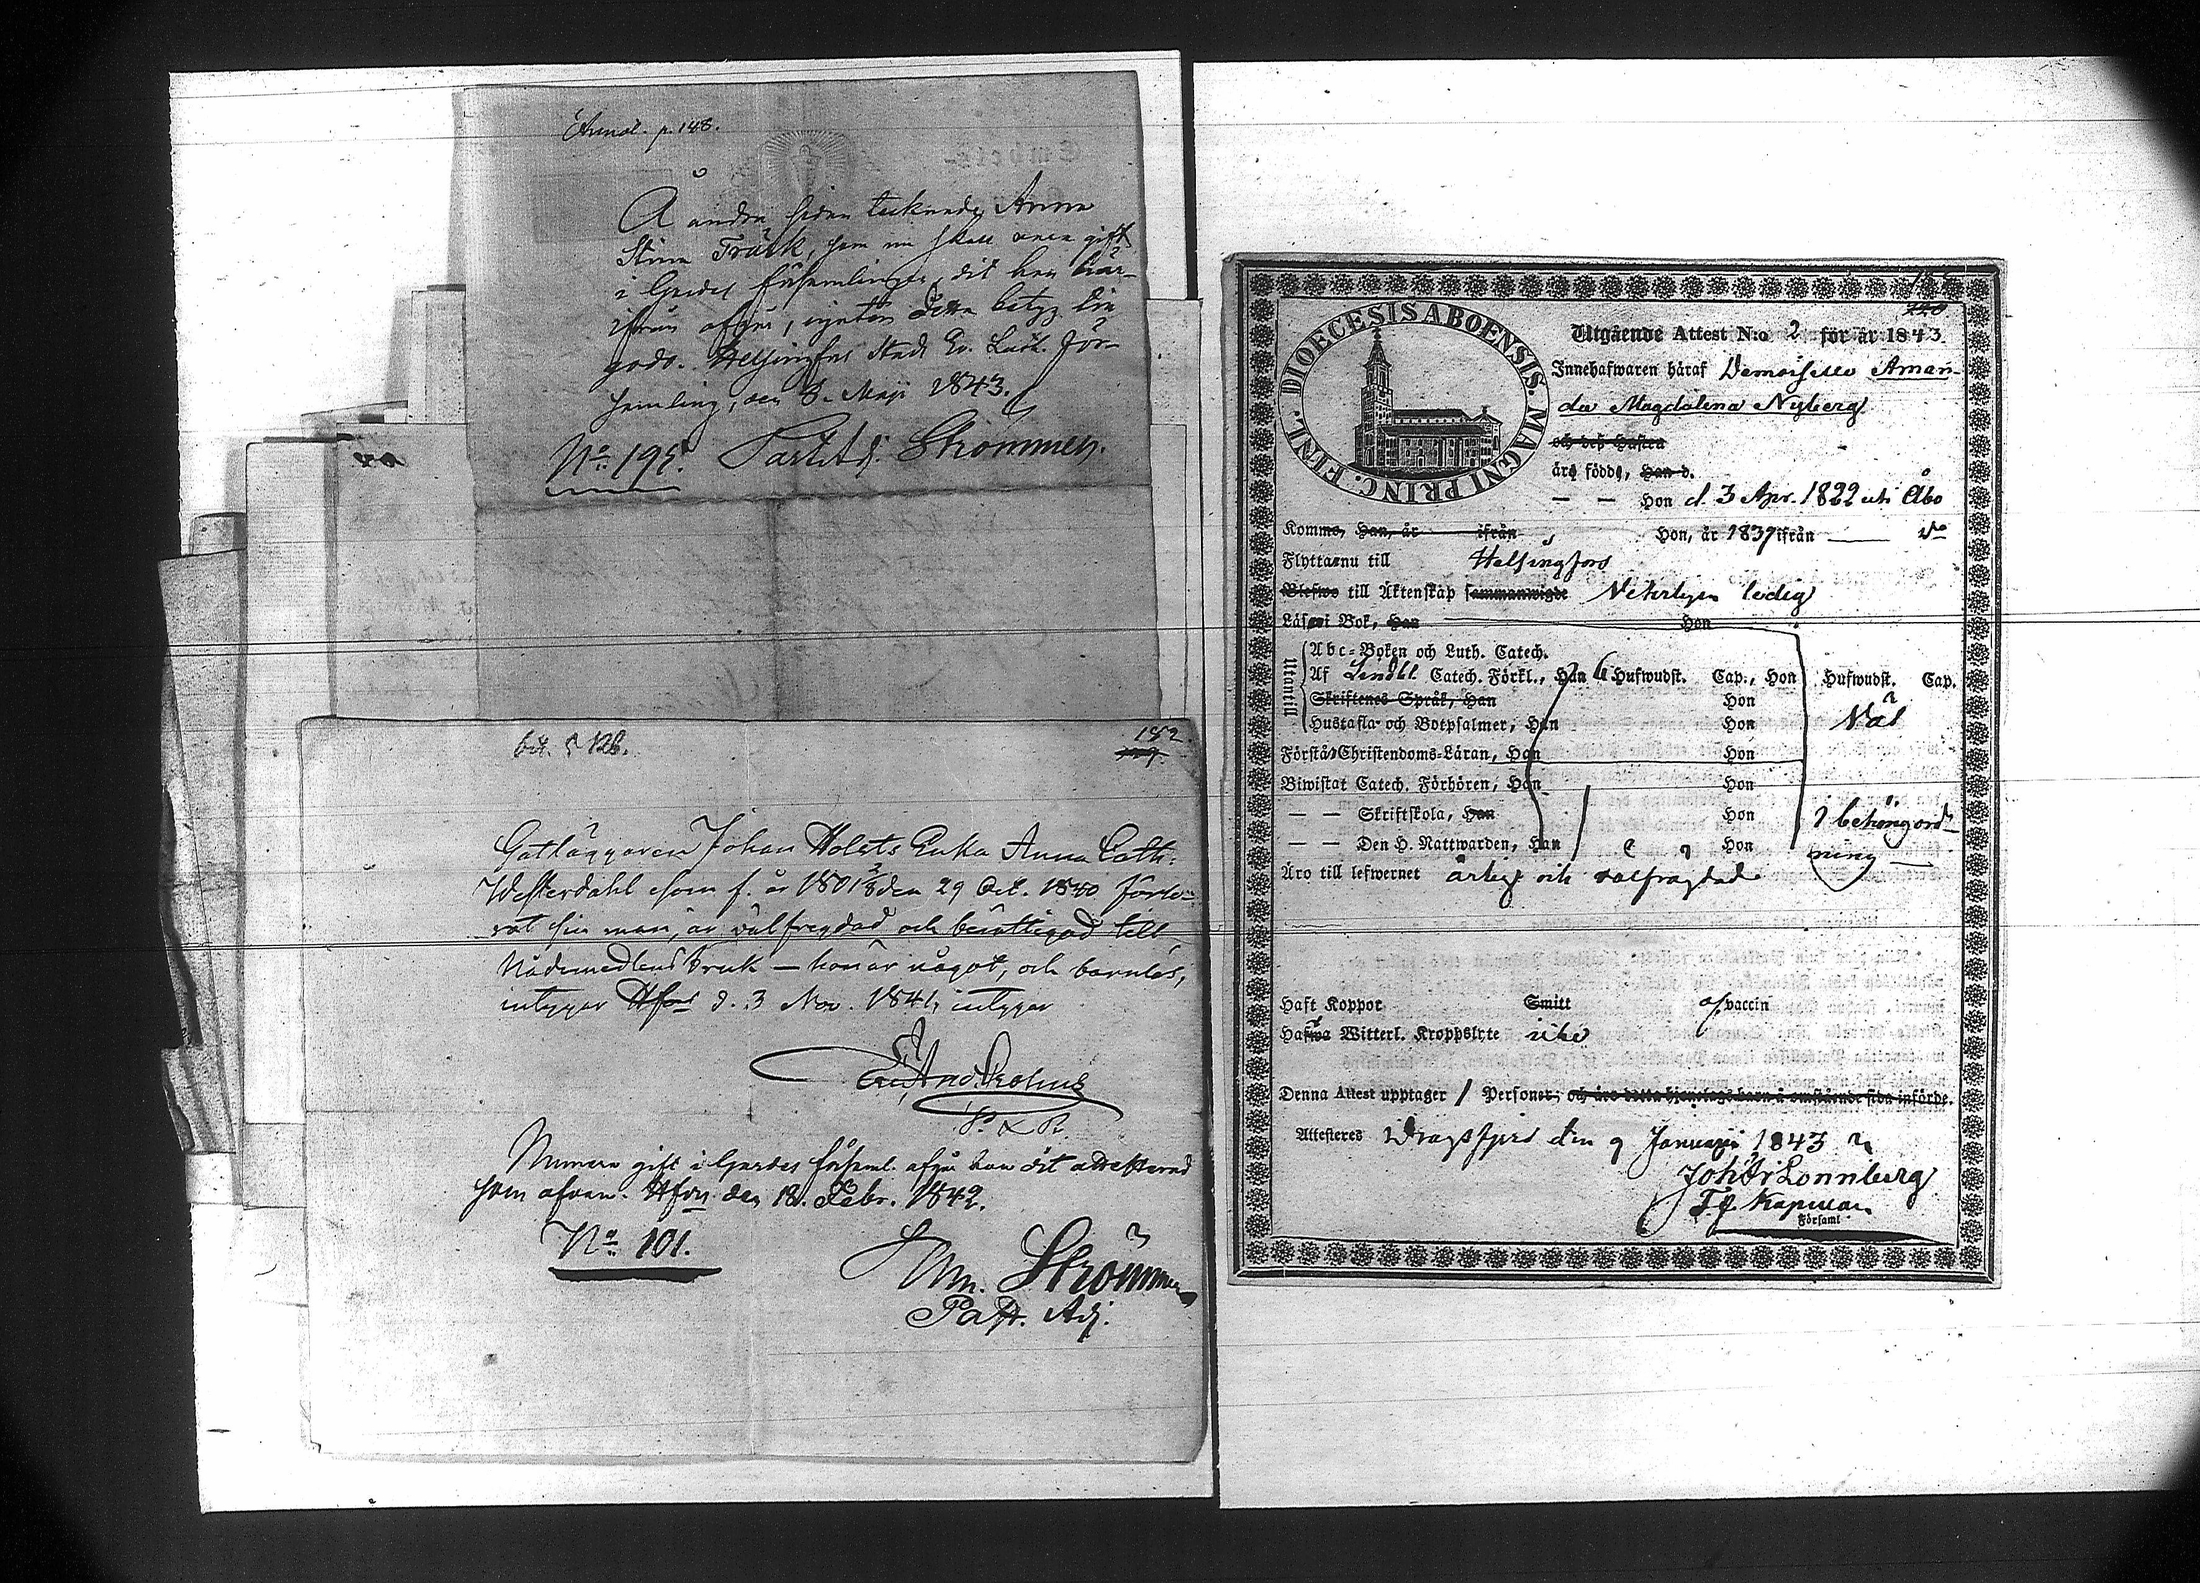 Annot. p. 148.
Å andra sidan tecknade Anna
Stina Träsk, som nu skall vara gift
i Gardes församlingen, dit hon här-
ifrån afgår, njuten detta betyg till
godo. Helsingfors Stads Ev. Luth. För-
samling, den 8. Maji 1843.
No 195. Past. Adj. Strömmer.
bet. p 126.
182
Gatläggaren Johan Holsts Enka Anna Cath.
Westerdahl som f. år 1801 3/8 den 29 Oct. 1840 förlo-
rat sin man, är välfregdad och berättigad till
Nådemedlens bruk — hon är något, och barnlös,
intygar Hfors d. 3 Nov. 1841, intygar
P. L. R.
Numera gift i Gardes församl. afgår hon dit attesterad
som ofvan. Hfors den 18. Febr. 1842.
No 101.
Strömmer
Past. Adj.
DIOECESIS ABOENSIS. MAGNI PRINC. FINL.
Utgående Attest N:o 2 för år 1843.
Innehafwaren häraf Demoiselle Aman-
da Magdalena Nyberg
och deß Hustru
äro födde, Han d.
— — Hon d. 3 Apr. 1822 uti Åbo
Komme, Han, år ifrån Hon, år 1837 ifrån — do
Flytta nu till Helsingfors
Blefwo till Äktenskap sammanwigde Veterligen ledig
Läsa i Bok, Han Hon
Utantill
Abc-Boken och Luth. Catech.
Af Lindbl. Catech. Förkl., Han 6 Hufwudst. Cap., Hon Hufwudst. Cap.
Skriftenes Språk, Han Hon
Nöl
Hustafla- och Botpsalmer, Han Hon
Förstå Christendoms-Läran, Han Hon
Biwistat Catech. Förhören, Han Hon
— — Skriftskola, Han Hon
i behörig ord-
— — Den H. Nattwarden, Han Hon
ning —
Äro till lefwernet ärlig och välfrägdad
Haft Koppor Smitt af vaccin
Hafwa Witterl. Kroppslyte icke
Denna Attest upptager 1 Personer, och äro detta Hjonelags barn å omstående sida införde.
Attesteres Dragsfjerd den 9 Januarii 1843
Joh. Lönnberg
T.f. Kapellan
Församl